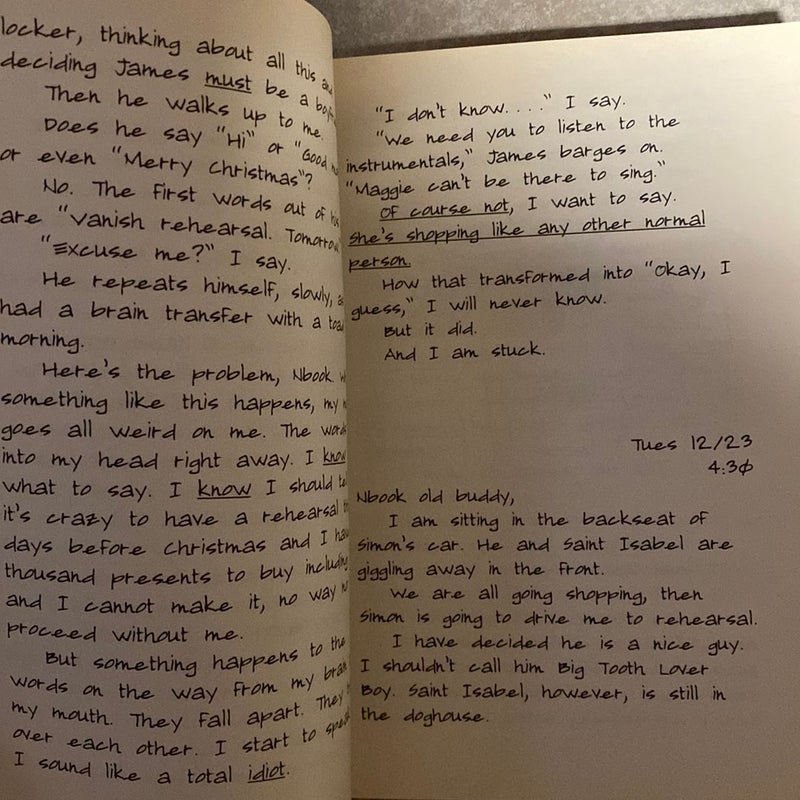 locker, thinking about all this an
deciding James must be a boy
Then he walks up to me.
Does he say "Hi" or "Good
or even "Merry Christmas"?
No. The first words out of his
are "Vanish rehearsal. Tomorrow
"Excuse me?" I say.
He repeats himself, slowly, as
had a brain transfer with a toa
morning.
Here's the problem, Nbook. W
something like this happens, my
goes all weird on me. The words
into my head right away. I know
what to say. I know I should te
it's crazy to have a rehearsal
days before Christmas and I hav
thousand presents to buy including
and I cannot make it, no way
proceed without me.
But something happens to the
words on the way from my brain
my mouth. They fall apart. They
over each other. I start to spe
I sound like a total idiot.
"I don't know. . . ." I say.
"We need you to listen to the
instrumentals," James barges on.
"Maggie can't be there to sing."
Of course not, I want to say.
She's shopping like any other normal
person.
How that transformed into "Okay, I
guess," I will never know.
But it did.
And I am stuck.
Tues 12/23
4:3ϕ
Nbook old buddy,
I am sitting in the backseat of
Simon's car. He and Saint Isabel are
giggling away in the front.
We are all going shopping, then
Simon is going to drive me to rehearsal.
I have decided he is a nice guy.
I shouldn't call him Big Tooth Lover
Boy. Saint Isabel, however, is still in
the doghouse.